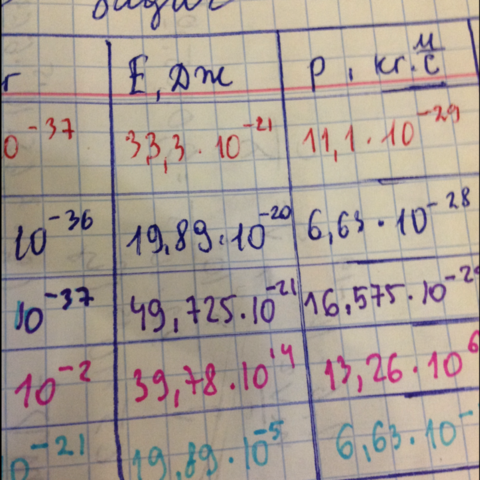 E, Дж p, кг·м/с
0⁻³⁷ 33,3·10⁻²¹ 11,1·10⁻²⁹
10⁻³⁶ 19,89·10⁻²⁰ 6,63·10⁻²⁸
10⁻³⁷ 49,725·10⁻²¹ 16,575·10⁻²⁹
10⁻² 39,78·10¹⁴ 13,26·10⁶
0⁻²¹ 19,89·10⁻⁵ 6,63·10⁻